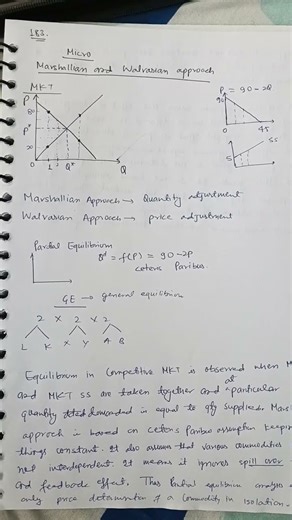 183.
Micro
Marshallian and Walrasian approach
MKT
P
P*
20
0 1 Q* Q
P = 90-2Q
90
0 45
SS
5
Marshallian Approach → Quantity adjustment
Walrasian Approach → price adjustment
Partial Equilibrium
Qd = f(P) = 90-2P
ceteris Paribus.
GE → general equilibrium
2 X 2 X 2
L K X Y A B
Equilibrium in competitive MKT is observed when M
and MKT SS are taken together and at particular
quantity demanded is equal to qty supplied. Mars
approach is based on ceteris Paribus assumption keeping
things constant. It also assume that various commodities
not independent. It means it ignores spill over
and feedback effect. Thus Partial equilibrium analysis
only price determination of a commodity in isolation.